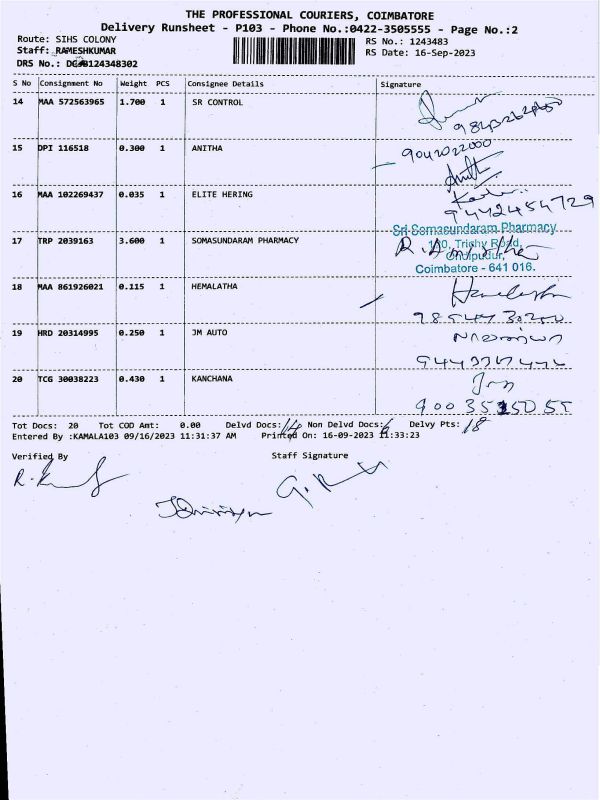 THE PROFESSIONAL COURIERS, COIMBATORE
Delivery Runsheet - P103 - Phone No.:0422-3505555 - Page No.:2
Route: SIHS COLONY
RS No.: 1243483
Staff: RAMESHKUMAR
RS Date: 16-Sep-2023
DRS No.:
S No Consignment No Weight PCS Consignee Details Signature
14 MAA 572563965 1.700 1 SR CONTROL
15 DPI 116518 0.300 1 ANITHA
9042022000
16 MAA 102269437 0.035 1 ELITE HERING
9442454729
Sri Somasundaram Pharmacy
17 TRP 2039163 3.600 1 SOMASUNDARAM PHARMACY
Trichy Road,
Coimbatore - 641 016.
18 MAA 861926021 0.115 1 HEMALATHA
19 HRD 20314995 0.250 1 JM AUTO
20 TCG 30038223 0.430 1 KANCHANA
Tot Docs: 20 Tot COD Amt: 0.00 Delvd Docs: 14 Non Delvd Docs: 6 Delvy Pts: 18
Entered By :KAMALA103 09/16/2023 11:31:37 AM Printed On: 16-09-2023 11:33:23
Verified By Staff Signature